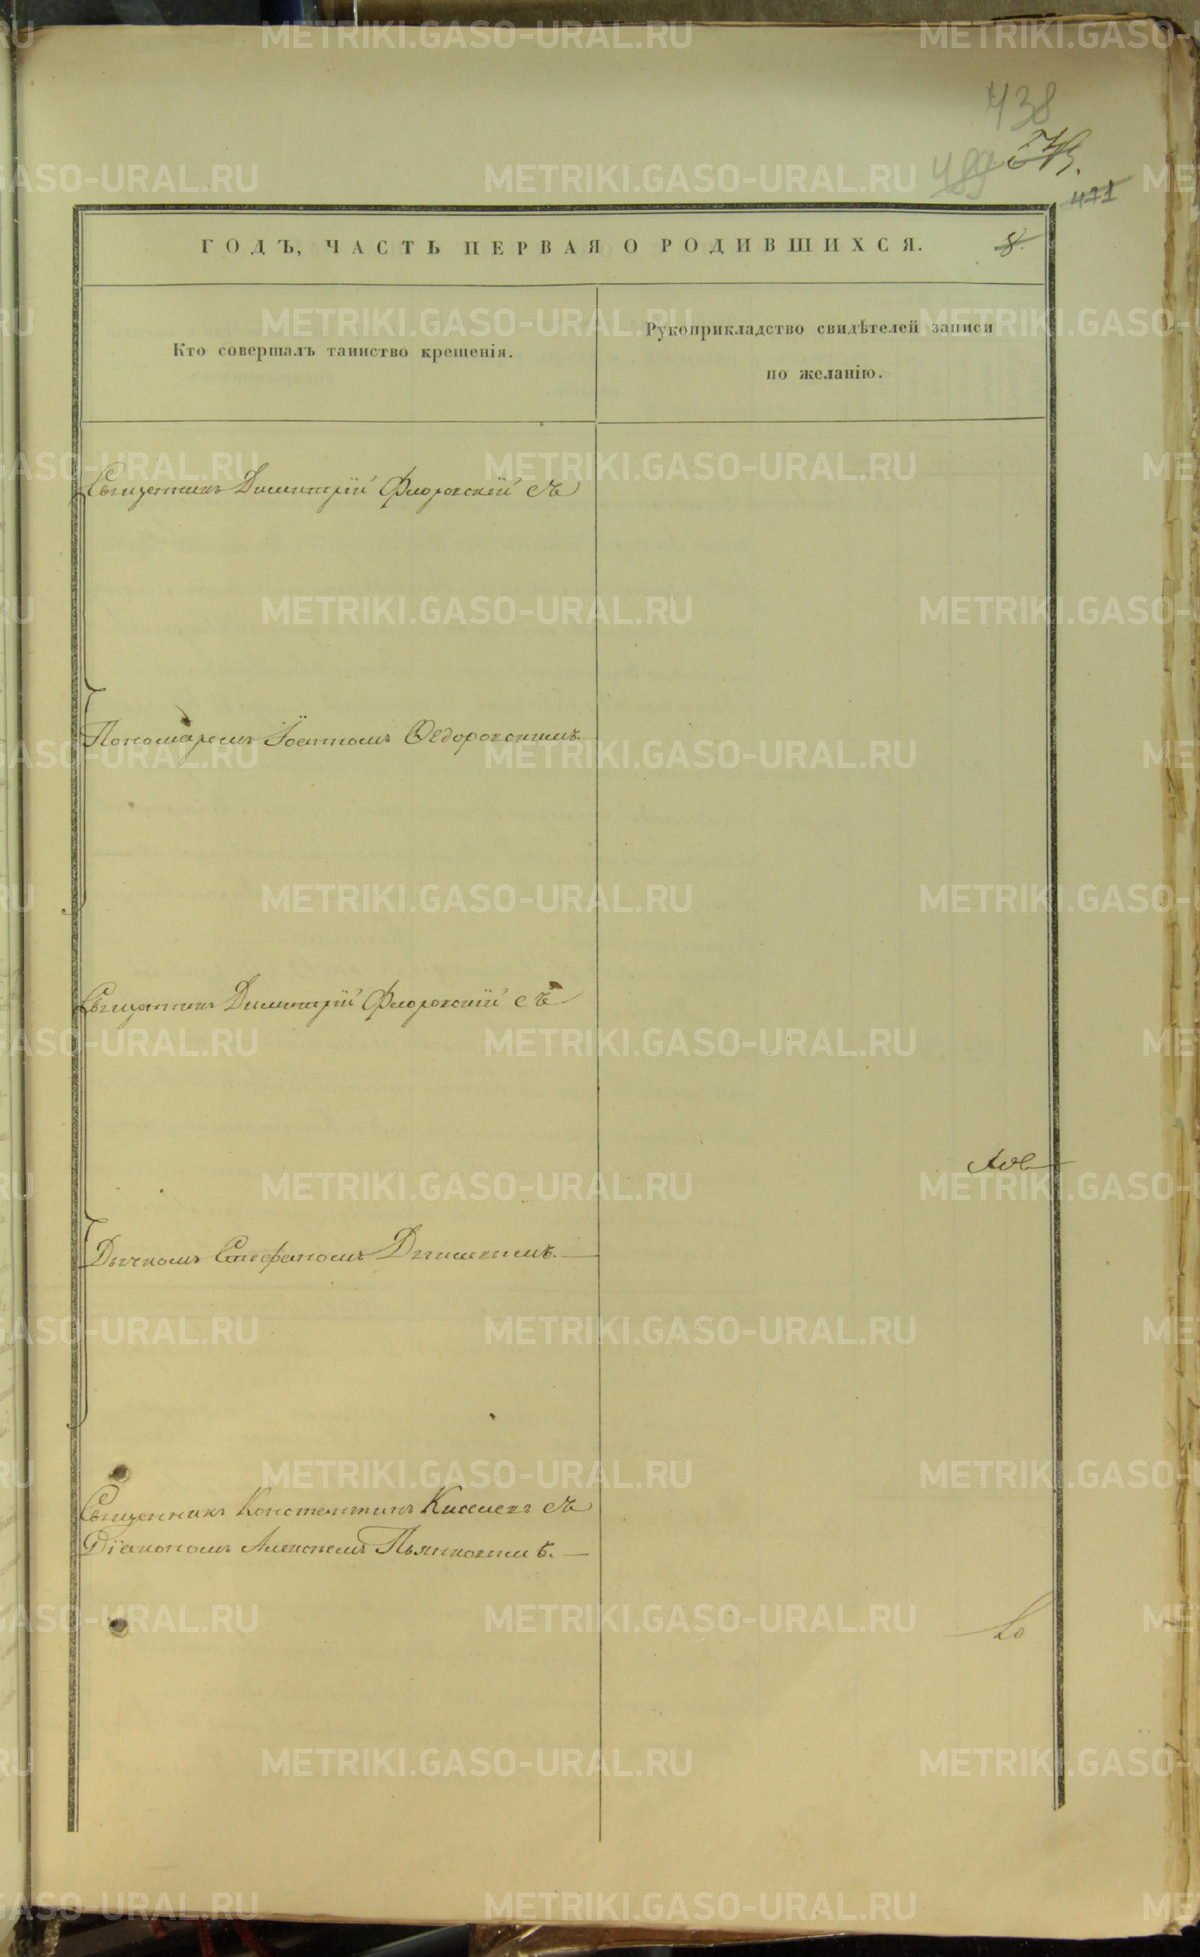 438
489
471
ГОДЪ, ЧАСТЬ ПЕРВАЯ О РОДИВШИХСЯ.
8.
Кто совершалъ таинство крещенія.
Рукоприкладство свидѣтелей записи
по желанію.
Священникъ Димитрій Флоровскій съ
Пономаремъ Іоанномъ Ѳедоровскимъ.
Священникъ Димитрій Флоровскій съ
Дьячкомъ Стефаномъ
Священникъ Константинъ Киселевъ съ
Діакономъ Алексѣемъ Пьянковымъ.
METRIKI.GASO-URAL.RU